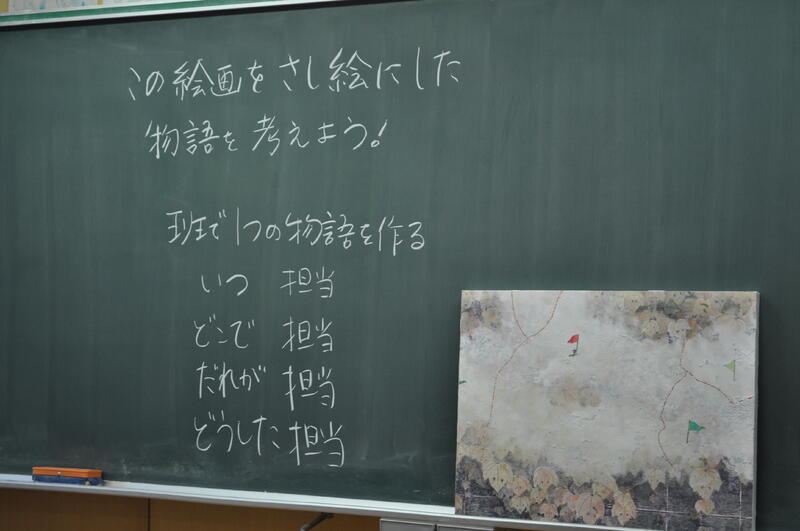 この絵画をさし絵にした
物語を考えよう!
班で1つの物語を作る
いつ 担当
どこで 担当
だれが 担当
どうした 担当